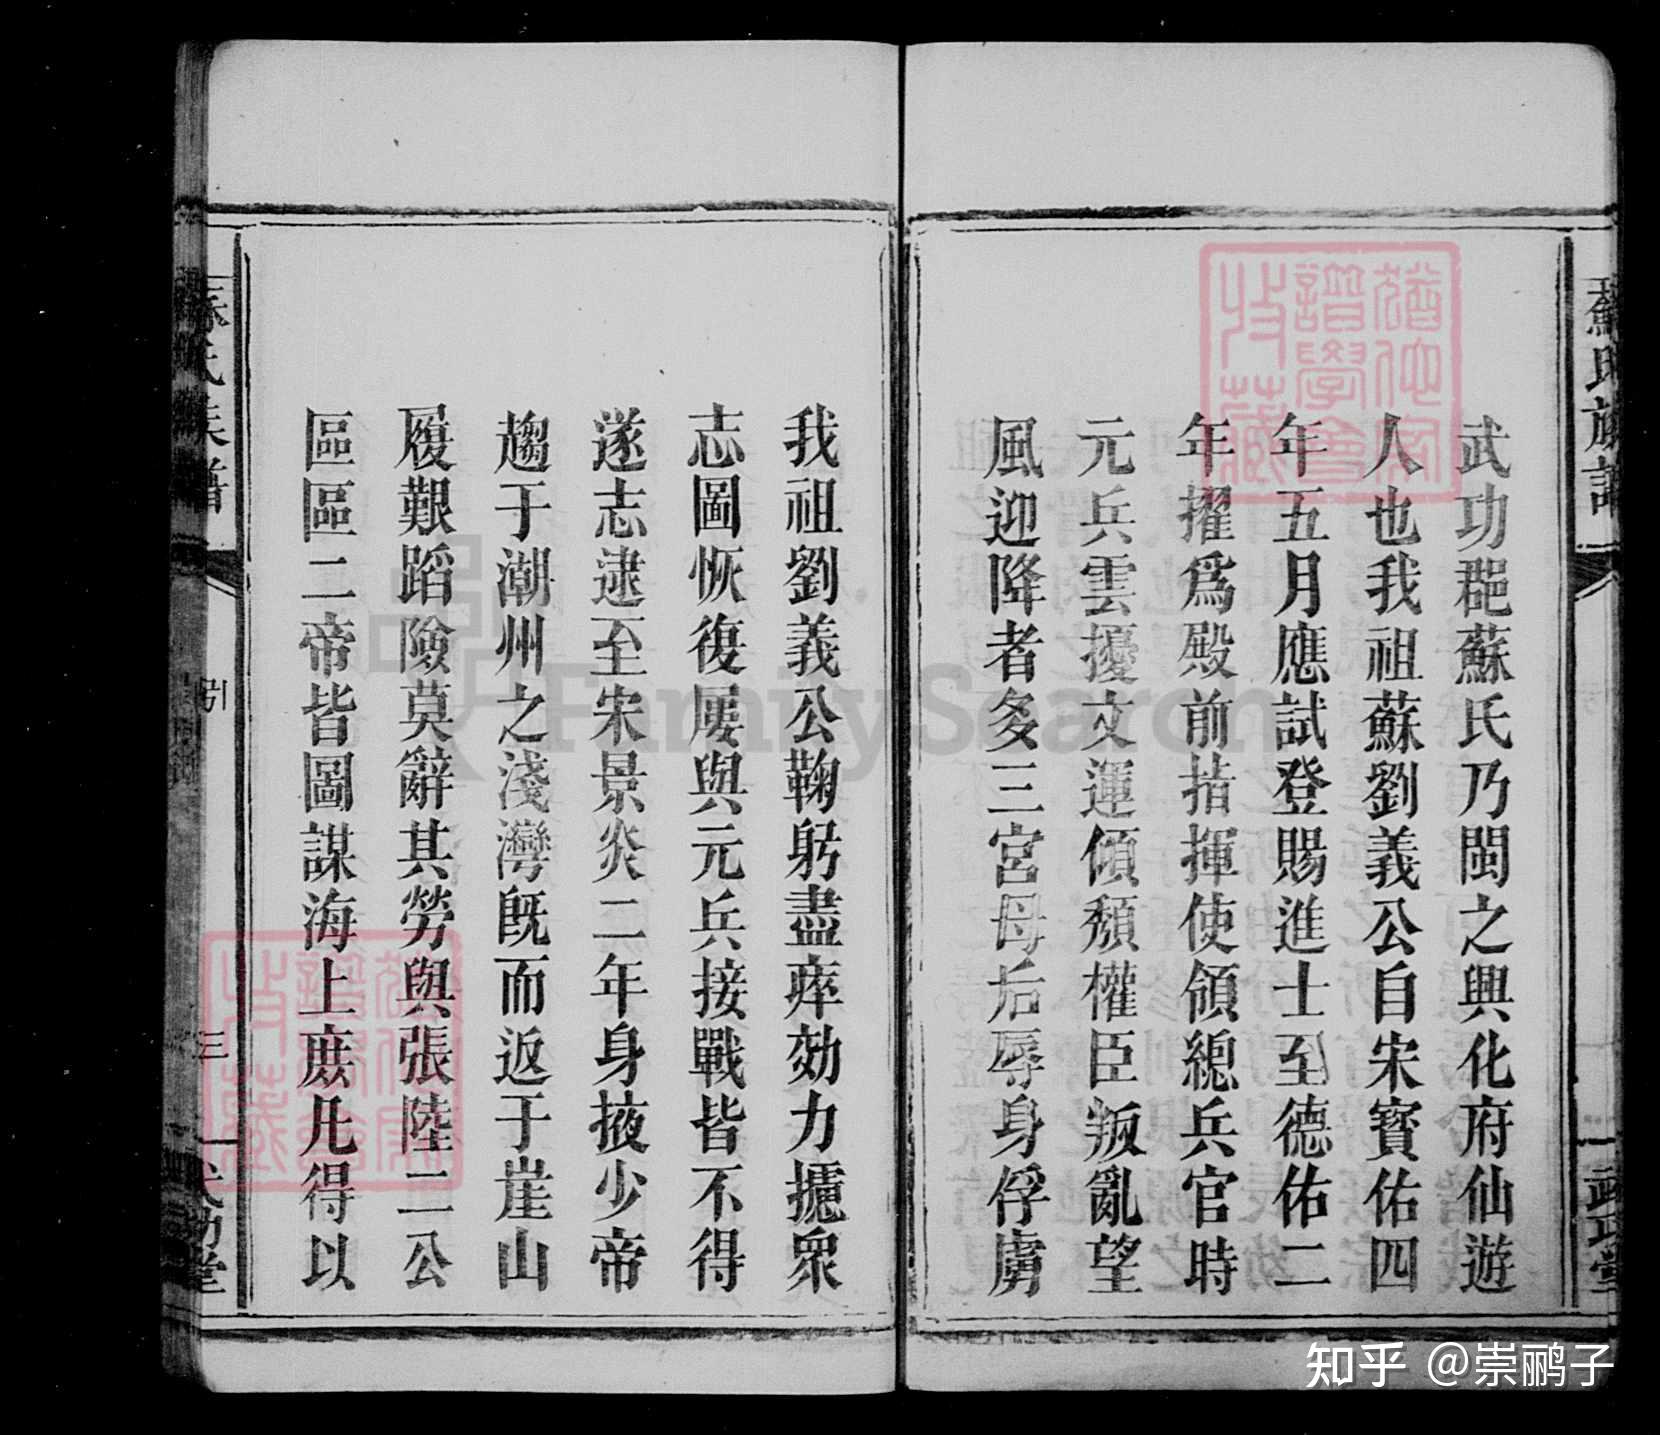 蘇氏族譜
武功堂
武功郡蘇氏乃閩之興化府仙遊
人也我祖蘇劉義公自宋寳佑四
年五月應試登賜進士至德佑二
年擢爲殿前指揮使領總兵官時
元兵雲擾文運傾頽權臣叛亂望
風迎降者多三宮母后辱身俘虜
我祖劉義公鞠躬盡瘁効力摅衆
志圖恢復屢與元兵接戰皆不得
遂志逮至宋景炎二年身掖少帝
趨于潮州之淺灣既而返于崖山
履艱蹈險莫辭其勞與張陸二公
區區二帝皆圖謀海上庶凡得以
蘇氏族譜
引
三
武功堂
FamilySearch
知乎 @崇鹂子